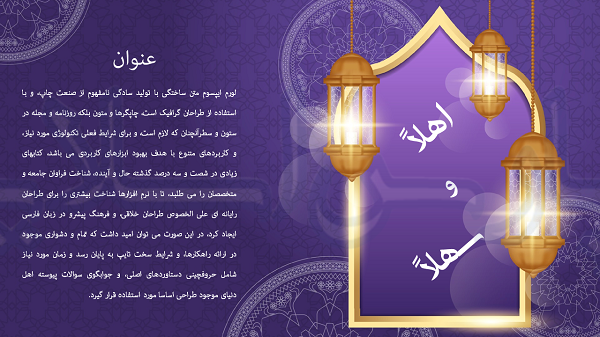 عنوان
لورم ایپسوم متن ساختگی با تولید سادگی نامفهوم از صنعت چاپ، و با
استفاده از طراحان گرافیک است، چاپگرها و متون بلکه روزنامه و مجله در
ستون و سطرآنچنان که لازم است، و برای شرایط فعلی تکنولوژی مورد نیاز،
و کاربردهای متنوع با هدف بهبود ابزارهای کاربردی می باشد، کتابهای
زیادی در شصت و سه درصد گذشته حال و آینده، شناخت فراوان جامعه و
متخصصان را می طلبد، تا با نرم افزارها شناخت بیشتری را برای طراحان
رایانه ای علی الخصوص طراحان خلاقی، و فرهنگ پیشرو در زبان فارسی
ایجاد کرد، در این صورت می توان امید داشت که تمام و دشواری موجود
در ارائه راهکارها، و شرایط سخت تایپ به پایان رسد و زمان مورد نیاز
شامل حروفچینی دستاوردهای اصلی، و جوابگوی سوالات پیوسته اهل
دنیای موجود طراحی اساسا مورد استفاده قرار گیرد.
اهلاً
و
سهلاً